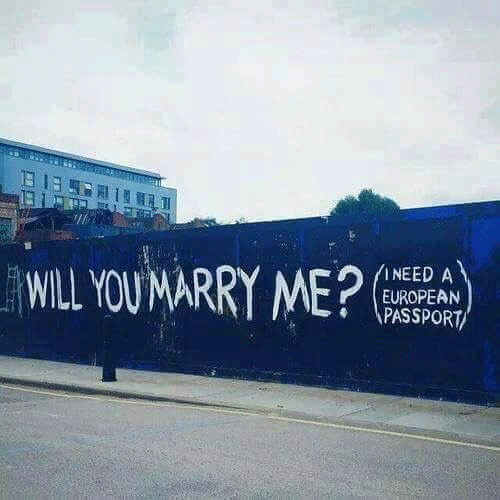 WILL YOU MARRY ME?
(I NEED A
EUROPEAN
PASSPORT)